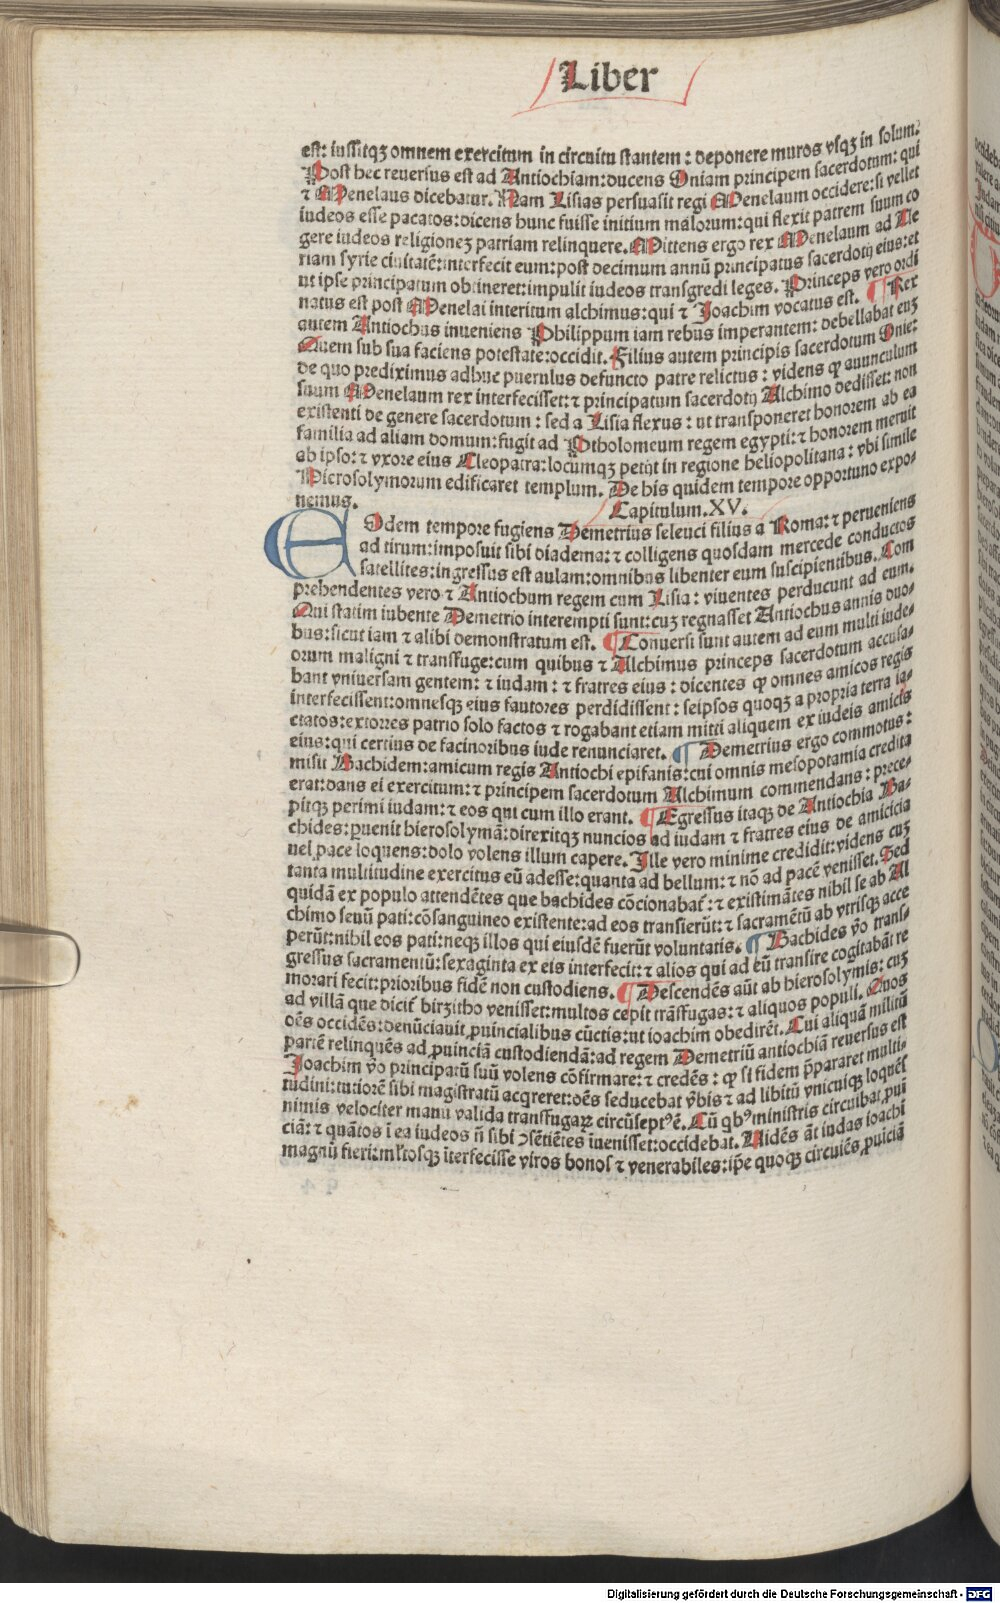 Liber
est: iussitqꝫ omnem exercitum in circuitu stantem: deponere muros vsqꝫ in solum.
Post hec reuersus est ad Antiochiam: ducens Oniam principem sacerdotum: qui
⁊ Menelaus dicebatur. Nam Lisias persuasit regi Menelaum occidere: si vellet
iudeos esse pacatos: dicens hunc fuisse initium malorum: qui flexit patrem suum co
gere iudeos religioneꝫ patriam relinquere. Mittens ergo rex Menelaum ad Be
riam syrie ciuitatē: interfecit eum: post decimum annū principatus sacerdotij eius: et
ut ipse principatum obtineret: impulit iudeos transgredi leges. Princeps vero ordi
natus est post Menelai interitum alchimus: qui ⁊ Joachim vocatus est. ¶ Rex
autem Antiochus inueniens Philippum iam rebus imperantem: debellabat euꝫ
Quem sub sua faciens potestate: occidit. Filius autem principis sacerdotum Onie:
de quo prediximus adhuc puerulus defuncto patre relictus: videns ꝙ auunculum
suum Menelaum rex interfecisset: ⁊ principatum sacerdotij Alchimo dedisset: non
existenti de genere sacerdotum: sed a Lisia flexus: ut transponeret honorem ab ea
familia ad aliam domum: fugit ad Ptholomeum regem egypti: ⁊ honorem meruit
ab ipso: ⁊ vxore eius Cleopatra: locumqꝫ petijt in regione heliopolitana: vbi simile
Hierosolymorum edificaret templum. De his quidem tempore opportuno expo-
nemus. Capitulum. XV.
EOdem tempore fugiens Demetrius seleuci filius a Roma: ⁊ perueniens
ad tirum: imposuit sibi diadema: ⁊ colligens quosdam mercede conductos
satellites: ingressus est aulam: omnibus libenter eum suscipientibus. Com
prehendentes vero ⁊ Antiochum regem cum Lisia: viuentes perducunt ad eum.
Qui statim iubente Demetrio interempti sunt: cuꝫ regnasset Antiochus annis duo-
bus: sicut iam ⁊ alibi demonstratum est. ¶ Conuersi sunt autem ad eum multi iude-
orum maligni ⁊ transfuge: cum quibus ⁊ Alchimus princeps sacerdotum accusa-
bant vniuersam gentem: ⁊ iudam: ⁊ fratres eius: dicentes ꝙ omnes amicos regis
interfecissent: omnesqꝫ eius fautores perdidissent: seipsos quoqꝫ a propria terra ia-
ctatos: extorres patrio solo factos ⁊ rogabant etiam mitti aliquem ex iudeis amicis
eius: qui certius de facinoribus iude renunciaret. ¶ Demetrius ergo commotus:
misit Bachidem: amicum regis Antiochi epifanis: cui omnis mesopotamia credita
erat: dans ei exercitum: ⁊ principem sacerdotum Alchimum commendans: prece-
pitqꝫ perimi iudam: ⁊ eos qui cum illo erant. ¶ Egressus itaqꝫ de Antiochia Ba-
chides: ꝑuenit hierosolymā: direxitqꝫ nuncios ad iudam ⁊ fratres eius de amicicia
uel pace loquens: dolo volens illum capere. Ille vero minime credidit: videns cuꝫ
tanta multitudine exercitus eū adesse: quanta ad bellum: ⁊ nō ad pacē venisset. Sed
quidā ex populo attendētes que bachides cōcionabat̄: ⁊ existimātes nihil se ab Al
chimo seuū pati: cōsanguineo existente: ad eos transierūt: ⁊ sacramētū ab vtrisqꝫ acce
perūt: nihil eos pati: neqꝫ illos qui eiusdē fuerūt voluntatis. ¶ Bachides v̄o trans-
gressus sacramentū: sexaginta ex eis interfecit: ⁊ alios qui ad eū transire cogitabāt re
morari fecit: prioribus fidē non custodiens. ¶ Descendēs aūt ab hierosolymis: cuꝫ
ad villā que dicit̄ birzitho venisset: multos cepit trāsfugas: ⁊ aliquos populi. Quos
oēs occidēs: denūciauit ꝓuincialibus cūctis: ut ioachim obedirēt. Cui aliquā militū
partē relinquēs ad ꝓuinciā custodiendā: ad regem Demetriū antiochiā reuersus est
Joachim v̄o principatū suū volens cōfirmare: ⁊ credēs: ꝙ si fidem p̄pararet multi-
tudini: tutiorē sibi magistratū acq̄reret: oēs seducebat v̄bis ⁊ ad libitū vnicuiqꝫ loquēs
nimis velociter manū valida transfugaꝝ circūseptꝰ ē. Cū qbꝰ ministris circuibat ꝓuī
ciā: ⁊ quātos ī ea iudeos n̄ sibi ꝯsētiētes īuenisset: occidebat. Uidēs āt iudas ioachi
magnū fieri: ml̄tosqꝫ īterfecisse viros bonos ⁊ venerabiles: ip̄e quoqꝫ circuiēs ꝓuiciā
Digitalisierung gefördert durch die Deutsche Forschungsgemeinschaft - DFG